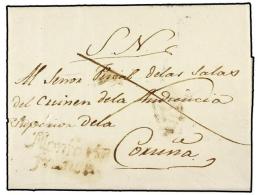 S. N.
Al Señor Fiscal de las Salas
del Crimen de la Audiencia
Superior de la
Coruña